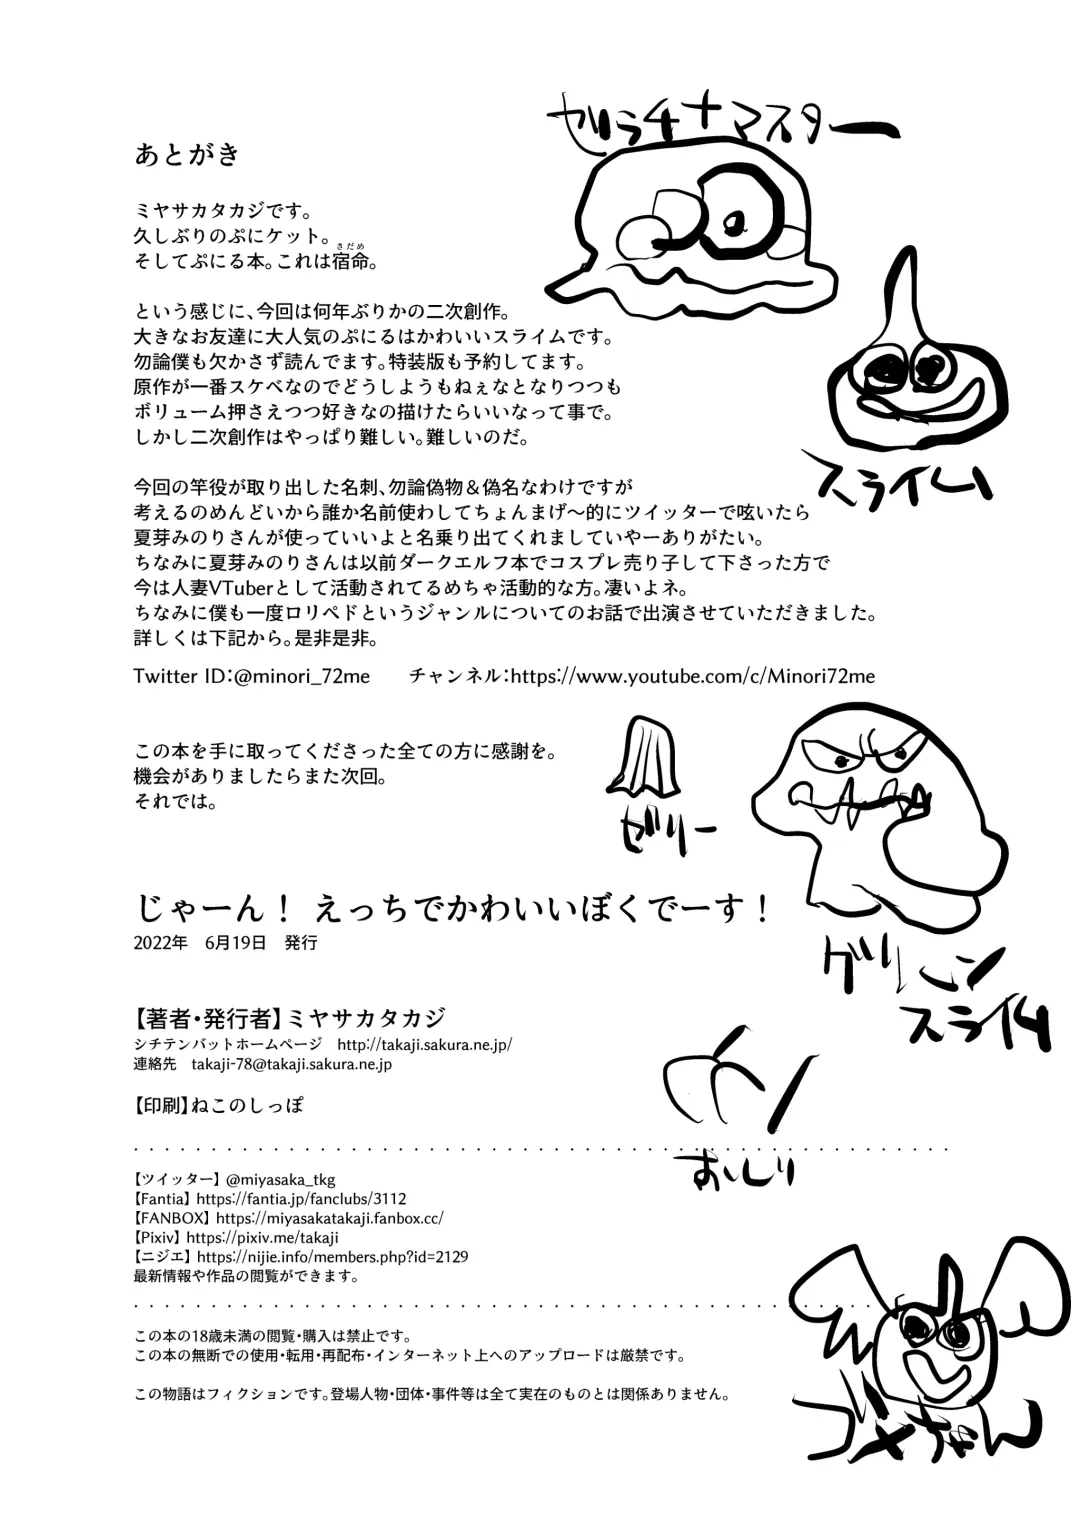 ゼラチナマスター
あとがき
ミヤサカタカジです。
久しぶりのぷにケット。
さだめ
そしてぷにる本。これは宿命。
という感じに、今回は何年ぶりかの二次創作。
大きなお友達に大人気のぷにるはかわいいスライムです。
勿論僕も欠かさず読んでます。特装版も予約してます。
原作が一番スケベなのでどうしようもねぇなとなりつつも
ボリューム押さえつつ好きなの描けたらいいなって事で。
しかし二次創作はやっぱり難しい。難しいのだ。
スライム
今回の竿役が取り出した名刺、勿論偽物＆偽名なわけですが
考えるのめんどいから誰か名前使わしてちょんまげ〜的にツイッターで呟いたら
夏芽みのりさんが使っていいよと名乗り出てくれましていやーありがたい。
ちなみに夏芽みのりさんは以前ダークエルフ本でコスプレ売り子して下さった方で
今は人妻VTuberとして活動されてるめちゃ活動的な方。凄いよネ。
ちなみに僕も一度ロリペドというジャンルについてのお話で出演させていただきました。
詳しくは下記から。是非是非。
Twitter ID：@minori_72me　チャンネル：https://www.youtube.com/c/Minori72me
この本を手に取ってくださった全ての方に感謝を。
機会がありましたらまた次回。
それでは。
ゼリー
じゃーん！ えっちでかわいいぼくでーす！
2022年　6月19日　発行
グリーン
スライム
【著者・発行者】ミヤサカタカジ
シチテンバットホームページ　http://takaji.sakura.ne.jp/
連絡先　takaji-78@takaji.sakura.ne.jp
【印刷】ねこのしっぽ
おしり
【ツイッター】@miyasaka_tkg
【Fantia】https://fantia.jp/fanclubs/3112
【FANBOX】https://miyasakatakaji.fanbox.cc/
【Pixiv】https://pixiv.me/takaji
【ニジエ】https://nijie.info/members.php?id=2129
最新情報や作品の閲覧ができます。
この本の18歳未満の閲覧・購入は禁止です。
この本の無断での使用・転用・再配布・インターネット上へのアップロードは厳禁です。
この物語はフィクションです。登場人物・団体・事件等は全て実在のものとは関係ありません。
ゴメちゃん